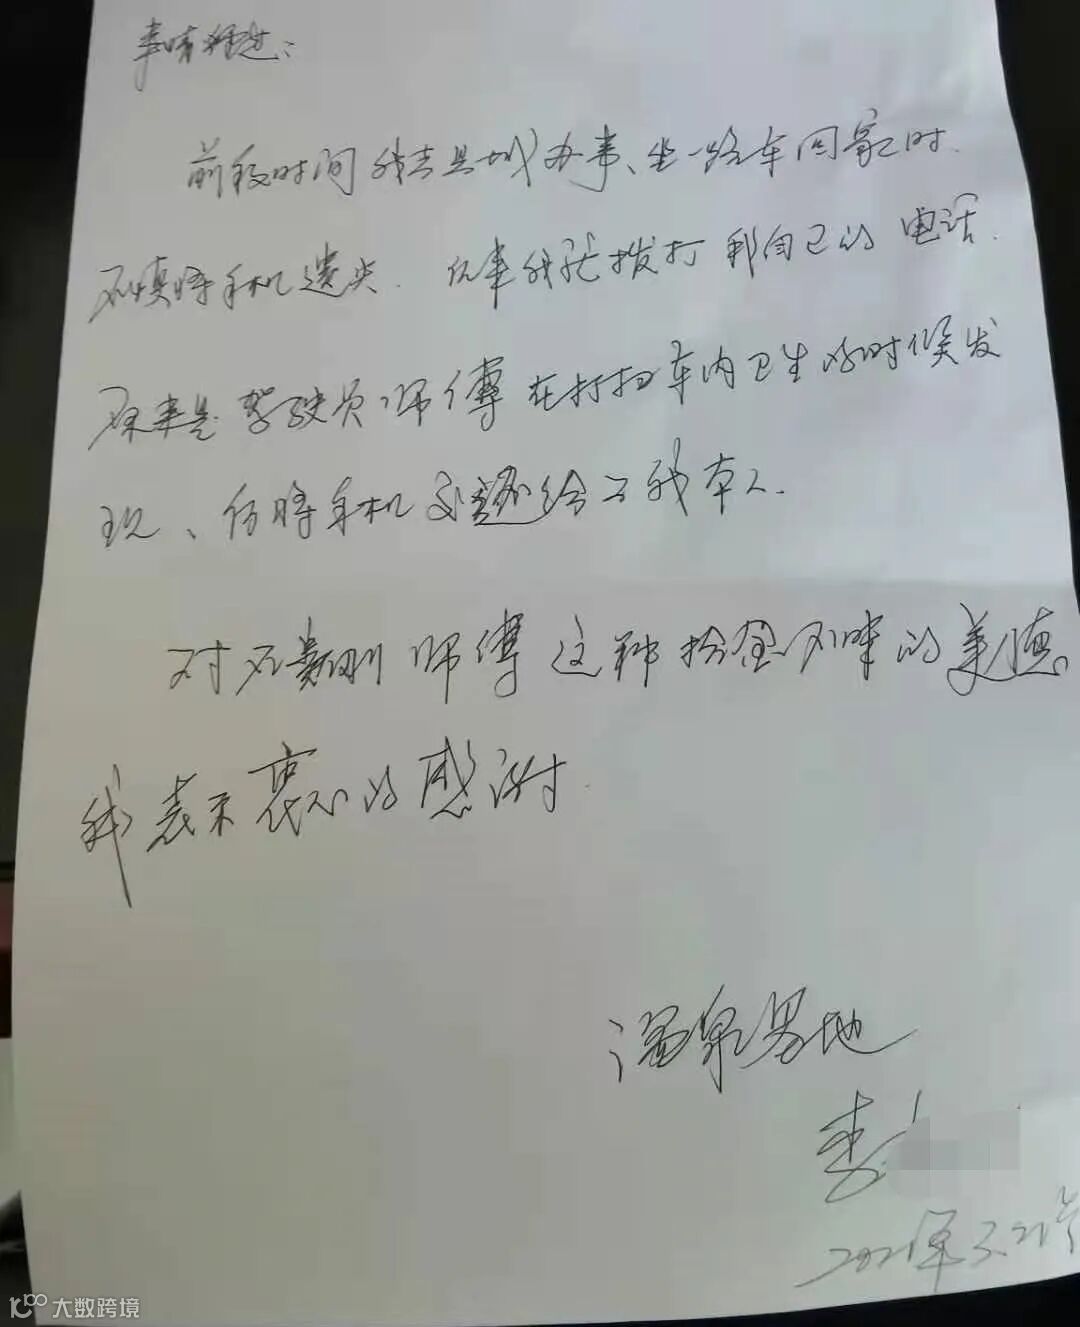 事情经过：
前段时间我去县城办事、坐一路车回家时.
不慎将手机遗失. 后来我就拨打我自己的电话.
原来是驾驶员师傅在打扫车内卫生的时候发
现、后将手机交还给了我本人.
对石 刚师傅这种拾金不昧的美德
我表示衷心的感谢.
温泉
李
2021年3.21号
大数跨境